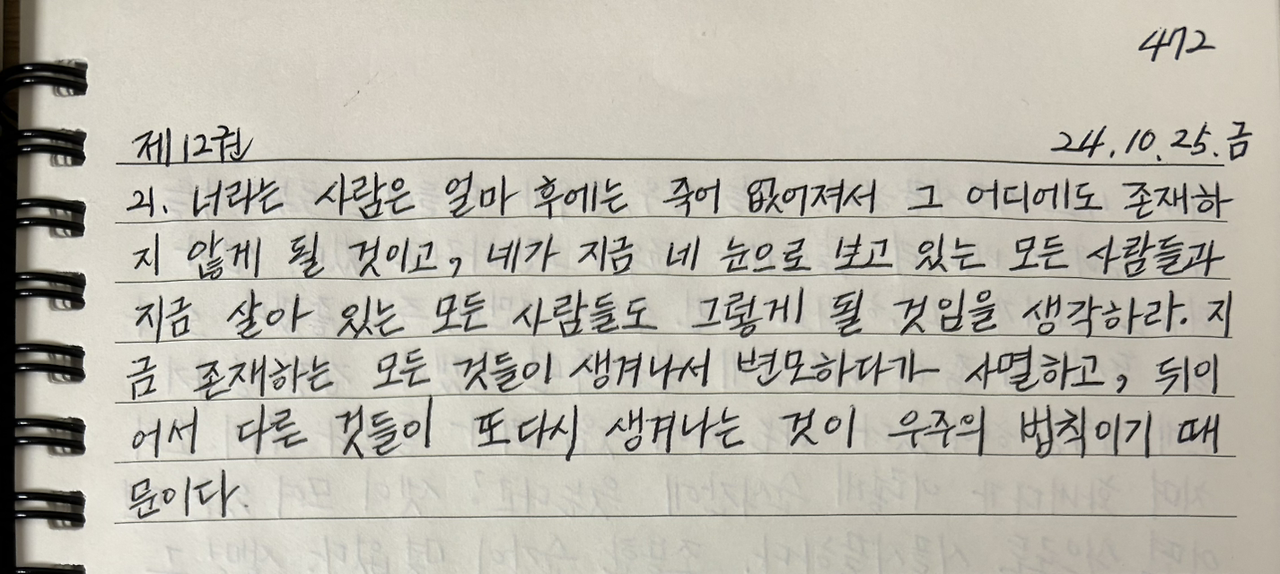 472
제12권 24.10.25.금
21. 너라는 사람은 얼마 후에는 죽어 없어져서 그 어디에도 존재하
지 않게 될 것이고, 네가 지금 네 눈으로 보고 있는 모든 사람들과
지금 살아 있는 모든 사람들도 그렇게 될 것임을 생각하라. 지
금 존재하는 모든 것들이 생겨나서 변모하다가 사멸하고, 뒤이
어서 다른 것들이 또다시 생겨나는 것이 우주의 법칙이기 때
문이다.